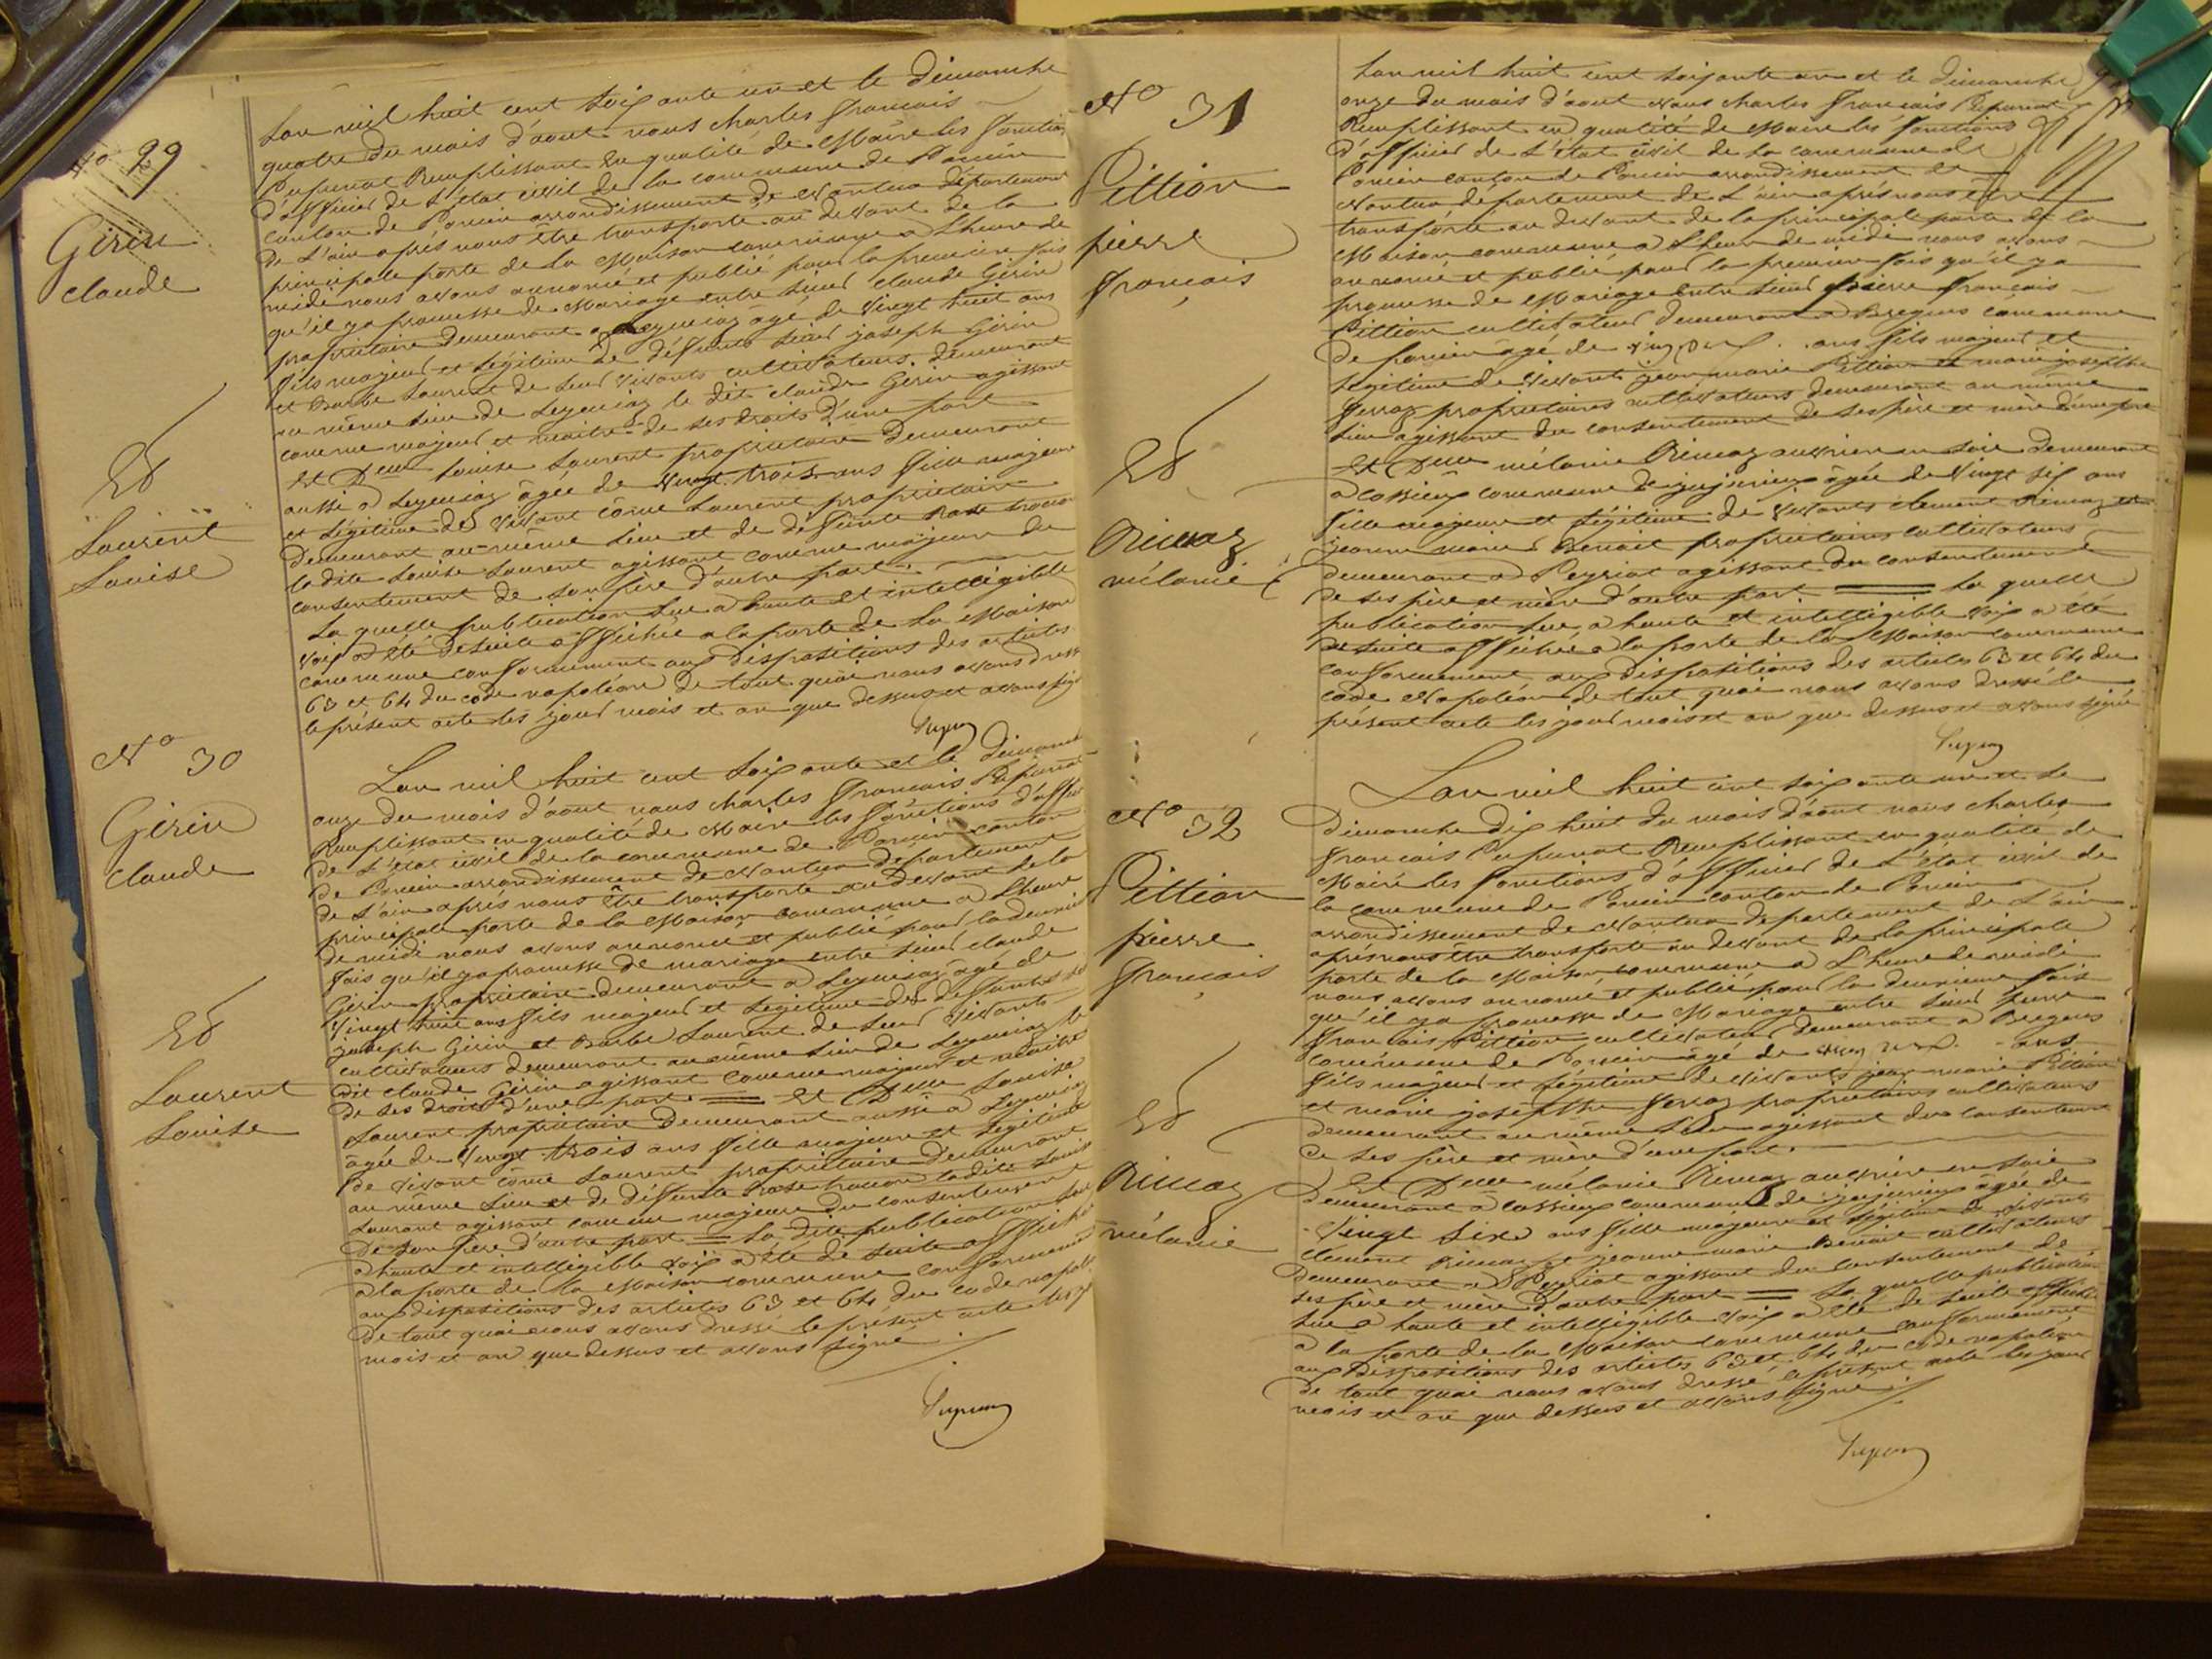 N° 29
Girin
Claude
Et
Laurent
Louise
Lan mil huit cent soixante un et le dimanche
quatre du mois d'aout nous charles francois
Remplissant en qualité de Maire les fonctions
d'officier de L'état civil de la commune de Poncin
canton de Poncin arrondissement de Nantua département
de L'ain après nous être transporté au devant de la
principale porte de la Maison commune a Lheure de
midi nous avons annoncé et publié pour la premiere fois
qu'il ya promesse de Mariage entre sieur Claude Girin
propriétaire demeurant a Leymiaz âgé de Vingt huit ans
fils majeur et légitime de défunts sieur joseph Girin
et Barbe Laurent de leur vivants cultivateurs demeurant
au même lieu de Leymiaz le dit claude Girin agissant
comme majeur et maitre de ses droits d'une part
Et Delle Louise Laurent propriétaire demeurant
aussi a Leymiaz âgée de Vingt trois ans fille majeure
et légitime de vivant côme Laurent propriétaire
demeurant au même lieu et de défunte Rose
ladite Louise Laurent agissant comme majeure du
consentement de son père d'autre part.
La quelle publication lue a haute et intelligible
voix a été de suite affichée a la porte de la Maison
commune conformement aux dispositions des articles
63 et 64 du code napoléon de tout quoi nous avons dressé
le présent acte les jour mois et an que dessus et avons signé
N° 30
Girin
claude
Et
Laurent
Louise
Lan mil huit cent soixante et le dimanche
onze du mois d'aout nous charles francois
Remplissant en qualité de Maire les fonctions d'officier
de L'état civil de la commune de Poncin canton
de Poncin arrondissement de Nantua département
de L'ain après nous être transporté au devant de la
principale porte de la Maison commune a Lheure
de midi nous avons annoncé et publié pour la deuxieme
fois qu'il ya promesse de mariage entre sieur claude
Girin propriétaire demeurant a Leymiaz âgé de
Vingt huit ans fils majeur et légitime des défunts
joseph Girin et Barbe Laurent de leur vivants
cultivateurs demeurant au même lieu de Leymiaz le
dit claude Girin agissant comme majeur et maitre
de ses droits d'une part = Et Delle Louise
Laurent propriétaire demeurant aussi a Leymiaz
âgée de Vingt trois ans fille majeure et légitime
de vivant côme Laurent propriétaire demeurant
au même lieu et de défunte Rose ladite Louise
Laurent agissant comme majeure du consentement
de son père d'autre part = La dite publication lue
a haute et intelligible voix a été de suite affichée
a la porte de la Maison commune conformement
aux dispositions des articles 63 et 64 du code napoléon
de tout quoi nous avons dressé le présent acte les jour
mois et an que dessus et avons signé
N° 31
Pittion
pierre
francois
Et
Rimaz
mélanie
Lan mil huit cent soixante un et le dimanche
onze du mois d'aout nous charles francois
Remplissant en qualité de Maire les fonctions
d'officier de L'état civil de la commune de
Poncin canton de Poncin arrondissement de
Nantua département de L'ain après nous être
transporté au devant de la principale porte de la
Maison commune a Lheure de midi nous avons
annoncé et publié pour la premiere fois qu'il ya
promesse de Mariage entre sieur pierre francois
Pittion cultivateur demeurant a Bregnes commune
de poncin âgé de ans fils majeur et
légitime de vivants jean marie Pittion et marie josephte
propriétaires cultivateurs demeurant au même
lieu agissant du consentement de ses père et mère d'une part
Et Delle mélanie Rimaz ouvriere en soie demeurant
a cossieux commune de jujurieux âgée de Vingt six ans
fille majeure et légitime de vivants clement Rimaz et
jeanne marie Benoit propriétaires cultivateurs
demeurant a Peyriat agissant du consentement
de ses père et mère d'autre part = La quelle
publication lue a haute et intelligible voix a été
de suite affichée a la porte de la Maison commune
conformement aux dispositions des articles 63 et 64 du
code Napoléon de tout quoi nous avons dressé le
présent acte les jour mois et an que dessus et avons signé
N° 32
Pittion
pierre
francois
Et
Rimaz
mélanie
Lan mil huit cent soixante un et le
Dimanche dix huit du mois d'aout nous charles
francois Remplissant en qualité de
Maire les fonctions d'officier de L'état civil de
la commune de Poncin canton de Poncin
arrondissement de Nantua département de L'ain
après nous être transporté au devant de la principale
porte de la Maison commune a L'heure de midi
nous avons annoncé et publié pour la deuxieme fois
qu'il ya promesse de Mariage entre sieur pierre
francois Pittion cultivateur demeurant a Bregnes
commune de Poncin âgé de ans
fils majeur et légitime de vivants jean marie Pittion
et marie josephte propriétaires cultivateurs
demeurant au même lieu agissant du consentement
de ses père et mère d'une part.
Et Delle mélanie Rimaz ouvrière en soie
demeurant a cossieux commune de jujurieux âgée de
Vingt Six ans fille majeure et légitime de vivants
clement Rimaz et jeanne marie Benoit cultivateurs
Demeurant a Peyriat agissant du consentement de
ses père et mère d'autre part = La quelle publication
lue a haute et intelligible voix a été de suite affichée
a la porte de la Maison commune conformement
aux dispositions des articles 63 et 64 du code napoléon
de tout quoi nous avons dressé le présent acte les jour
mois et an que dessus et avons signé